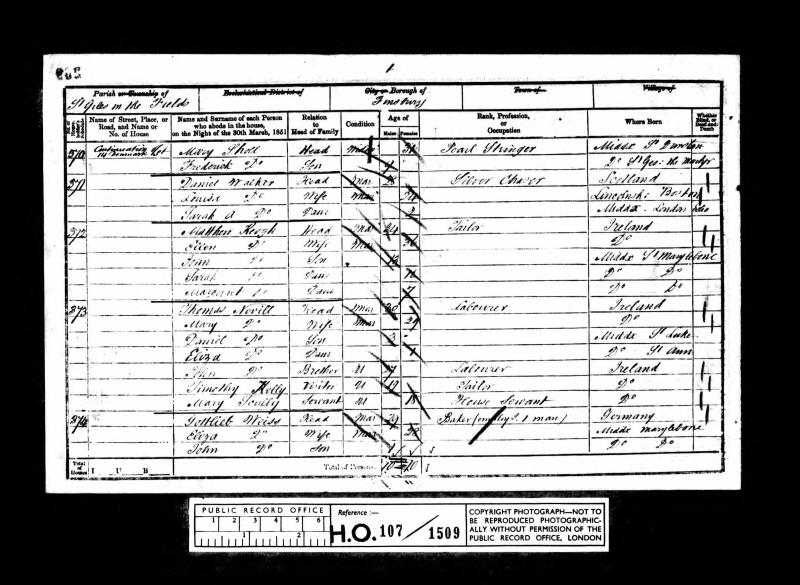 Parish or Township of
Ecclesiastical District of
City or Borough of
Town of
Village of
St Giles in the Fields
Finsbury
Name of Street, Place, or Road, and Name or No. of House
Name and Surname of each Person who abode in the house, on the Night of the 30th March, 1851
Relation to Head of Family
Condition
Age of
Males Females
Rank, Profession, or Occupation
Where Born
Whether Blind, or Deaf-and-Dumb
370 Mary Head Pearl Stringer Middx St Dunstan
Frederick Do Son Do St Geo: the Martyr
371 Daniel Walker Head Mar 28 Silver Chaser Scotland
Louisa Do Wife Mar Lincolnsh: Boston
Sarah A Do Daur 2 Middx London
372 Matthew Keogh Head Mar Tailor Ireland
Ellen Do Wife Mar Do
John Do Son Middx St Marylebone
Sarah Do Daur Do Do
Margaret Do Daur 7 Do Do
373 Thomas Nevill Head Mar 30 Labourer Ireland
Mary Do Wife Mar 29 Do
Daniel Do Son 3 Middx St Luke
Eliza Do Daur Do St Ann
John Do Brother U Labourer Ireland
Timothy Kelly Visitor U 19 Tailor Do
Mary Scully Servant U 18 House Servant Do
374 Gottlieb Weiss Head Mar Baker (employg. 1 man) Germany
Eliza Do Wife Mar 28 Middx Marylebone
John Do Son 1 Do Do
Total of Houses I U B
Total of Persons 10 10
PUBLIC RECORD OFFICE
1 2 3 4 5 6
1 2
Reference :-
H.O. 107/1509
COPYRIGHT PHOTOGRAPH—NOT TO
BE REPRODUCED PHOTOGRAPHIC-
ALLY WITHOUT PERMISSION OF THE
PUBLIC RECORD OFFICE, LONDON